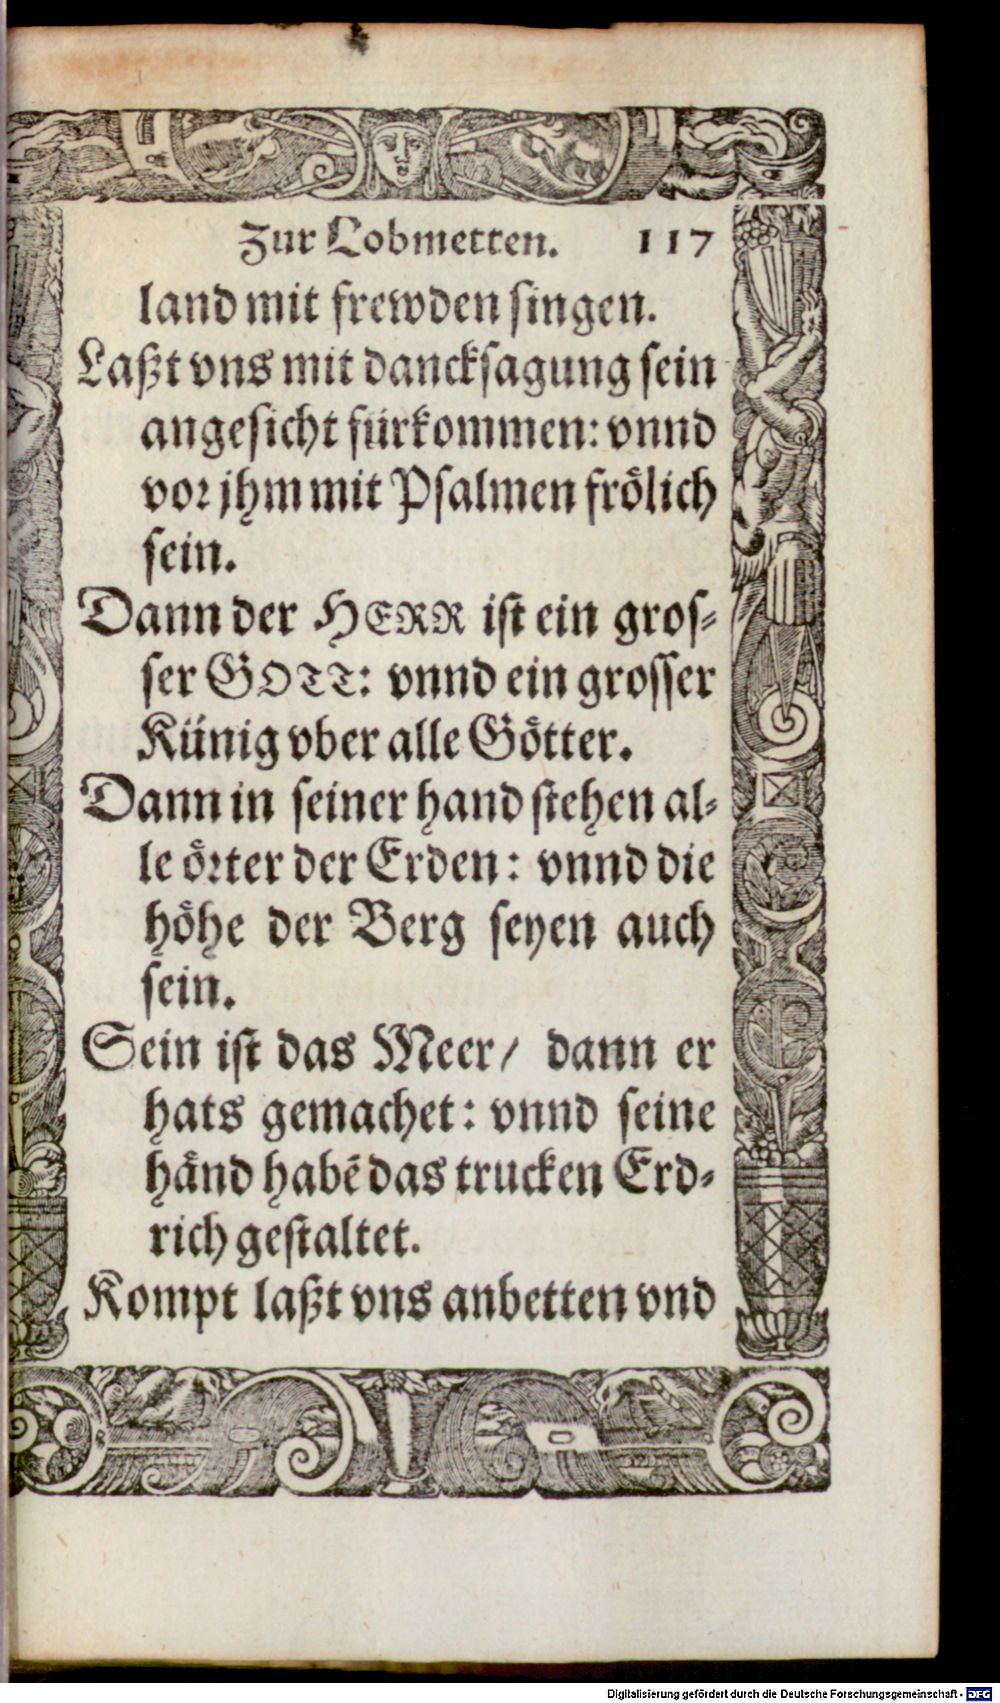 Zur Lobmetten. 117
land mit frewden singen.
Laßt vns mit dancksagung sein
angesicht fürkommen: vnnd
vor jhm mit Psalmen frölich
sein.
Dann der HERR ist ein gros-
ser GOTT: vnnd ein grosser
Künig vber alle Götter.
Dann in seiner hand stehen al-
le örter der Erden: vnnd die
höhe der Berg seyen auch
sein.
Sein ist das Meer/ dann er
hats gemachet: vnnd seine
händ habē das trucken Erd-
rich gestaltet.
Kompt laßt vns anbetten vnd
Digitalisierung gefördert durch die Deutsche Forschungsgemeinschaft - DFG